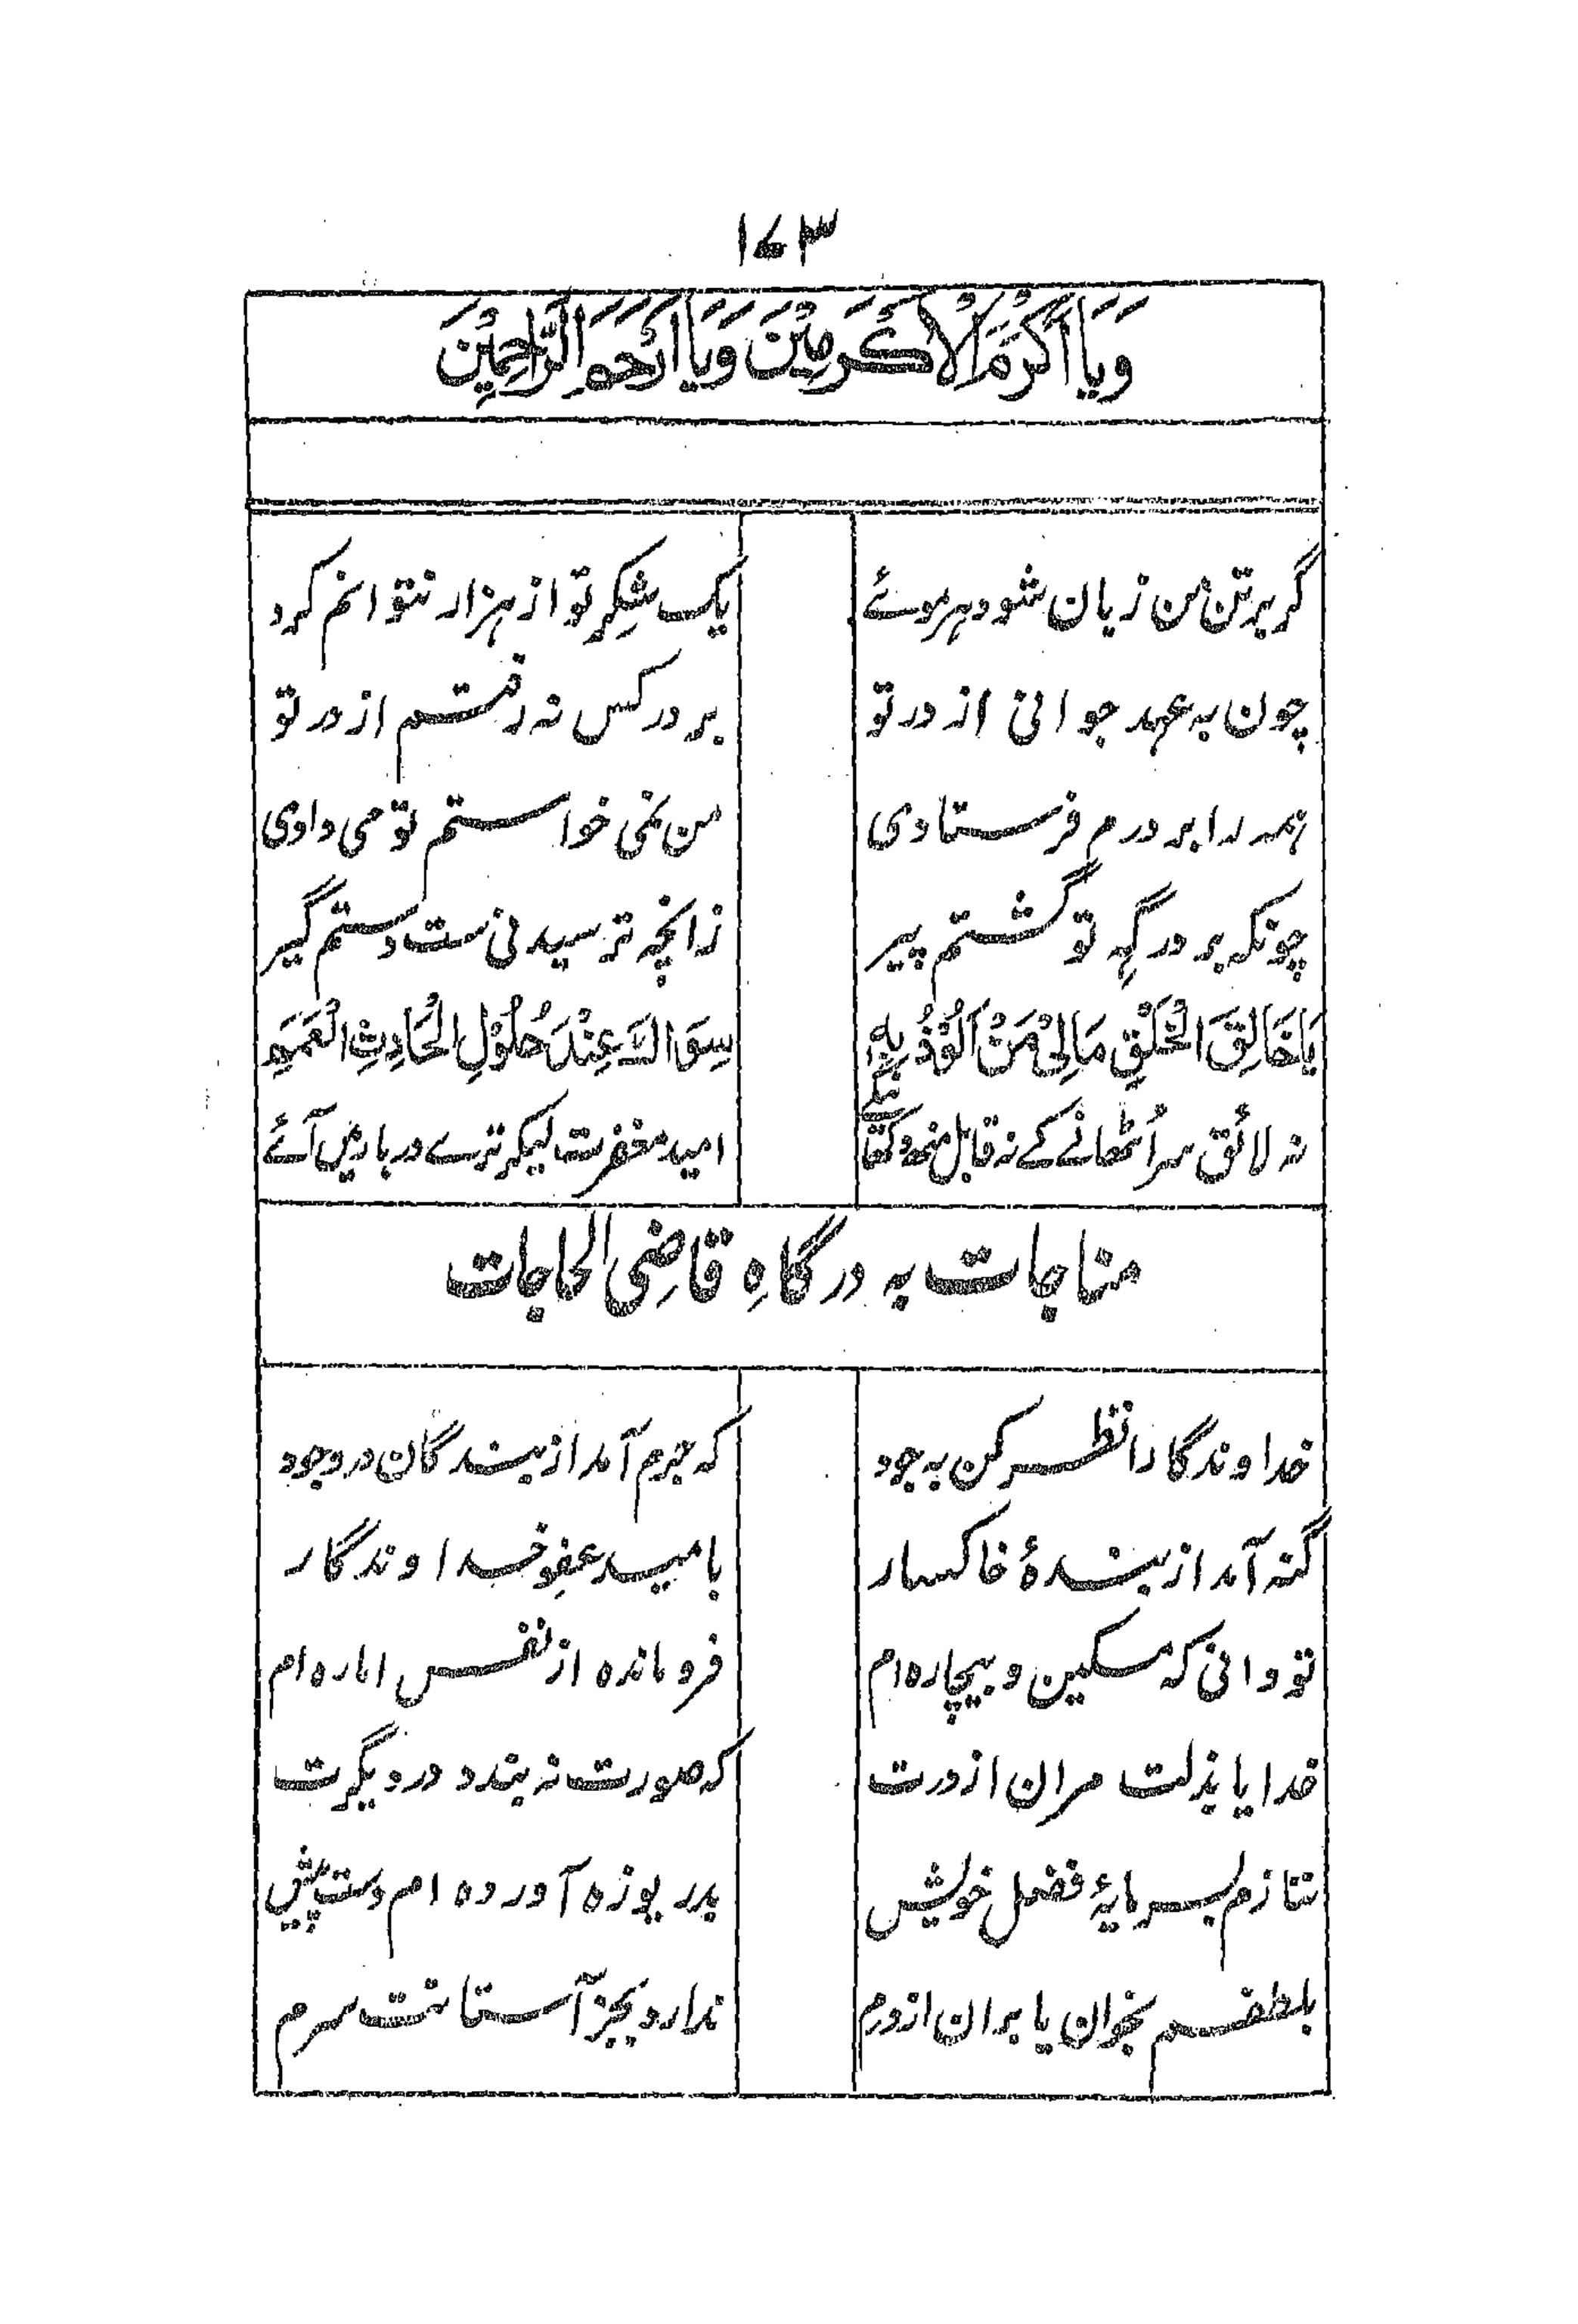 ۱۷۳
وَیَا اَکْرَمَ الْاَکْرَمِیْنَ وَیَا اَرْحَمَ الرَّاحِمِیْنَ
گر بر تن من زبان شود ہر موئے    یک شکرِ تو از ہزار نتوانم کرد
چون بہ عہد جوانی از در تو    بر در کس نہ رفتم از در تو
ہمہ را بر درم فرستادی    من نمی خواستم تو می دادی
چونکہ بر درگہہ تو گشتم پیر    زانچہ ترسیدنی ست دستم گیر
یَا خَالِقَ الْخَلْقِ مَالِیْ مَنْ اَلُوْذُ بِہٖ    سِوَاکَ عِنْدَ حُلُوْلِ الْحَادِثِ الْعَمَمِ
نہ لائق سر اُٹھانے کے نہ قابل منھ دکھانیکے    امید مغفرت لیکر ترے دربار میں آئے
مناجات بہ درگاہِ قاضِی الحاجات
خداوندگارا نظر کن بہ جود    کہ جرم آمد از بندگان در وجود
گنہ آمد از بندۂ خاکسار    بامید عفوِ خداوندگار
تو دانی کہ مسکین و بیچارہ ام    فرو ماندہ از نفس امارہ ام
خدایا بذلت مران از درت    کہ صورت نہ بندد در دیگرت
ننازم بسرمایۂ فضل خویش    بدریوزہ آوردہ ام دست پیش
بلطفم بخوان یا بران از درم    ندارد بجز آستانت سرم